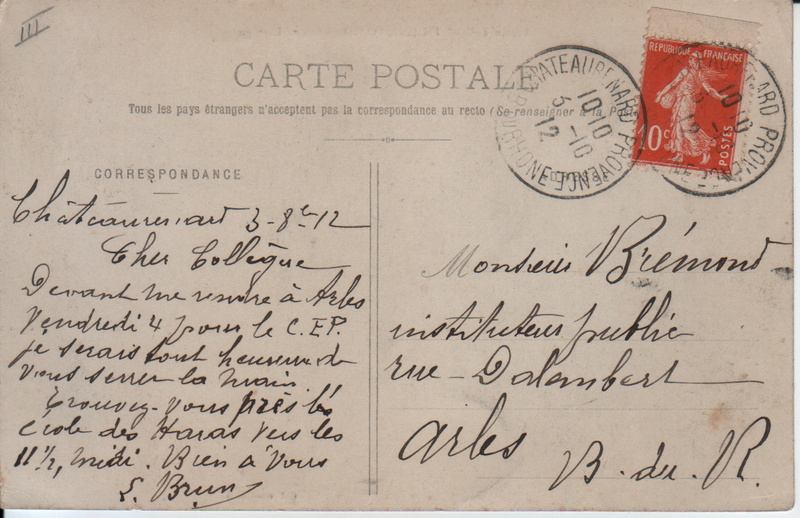 III
CARTE POSTALE
Tous les pays étrangers n'acceptent pas la correspondance au recto (Se renseigner à la Poste
CORRESPONDANCE
Châteaurenard 3-8bre 12
Cher Collègue
Devant me rendre à Arles
Vendredi 4 pour le C.E.P.
je serais tout heureux de
vous serrer la main.
Trouvez-vous près les
école des Haras vers les
11 ½, midi. Bien à vous
L. Brun
REPUBLIQUE FRANÇAISE
10c
POSTES
CHATEAURENARD PROVENCE
B. DU RHONE
10 10
3 -10
12
Monsieur Brémond
instituteur public
rue Dalembert
Arles
B. du R.